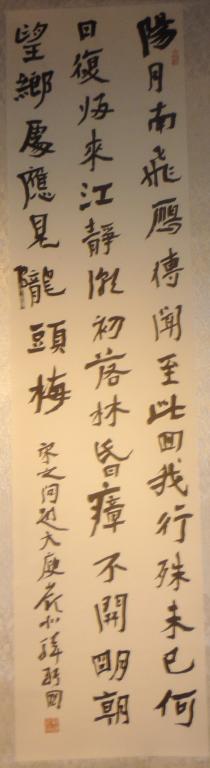 陽月南飛鴈傳聞至此回我行殊未已何
日復歸來江靜潮初落林昏瘴不開明朝
望鄉處應見隴頭梅
宋之問題大庾嶺